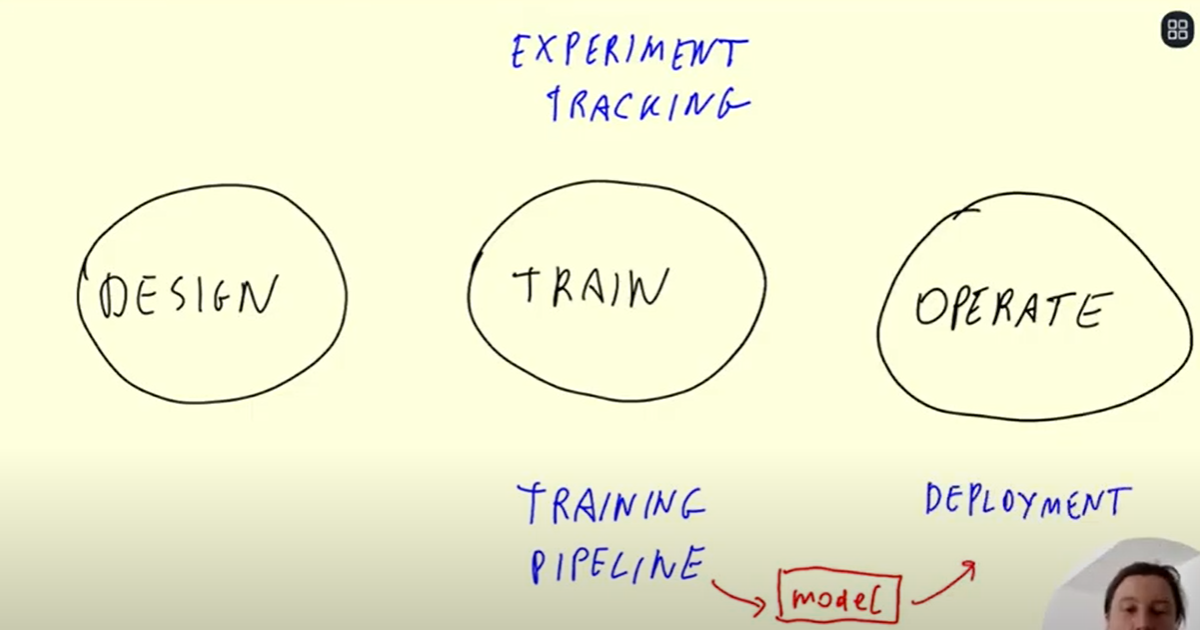 EXPERIMENT
TRACKING
DESIGN
TRAIN
OPERATE
TRAINING
PIPELINE
DEPLOYMENT
model